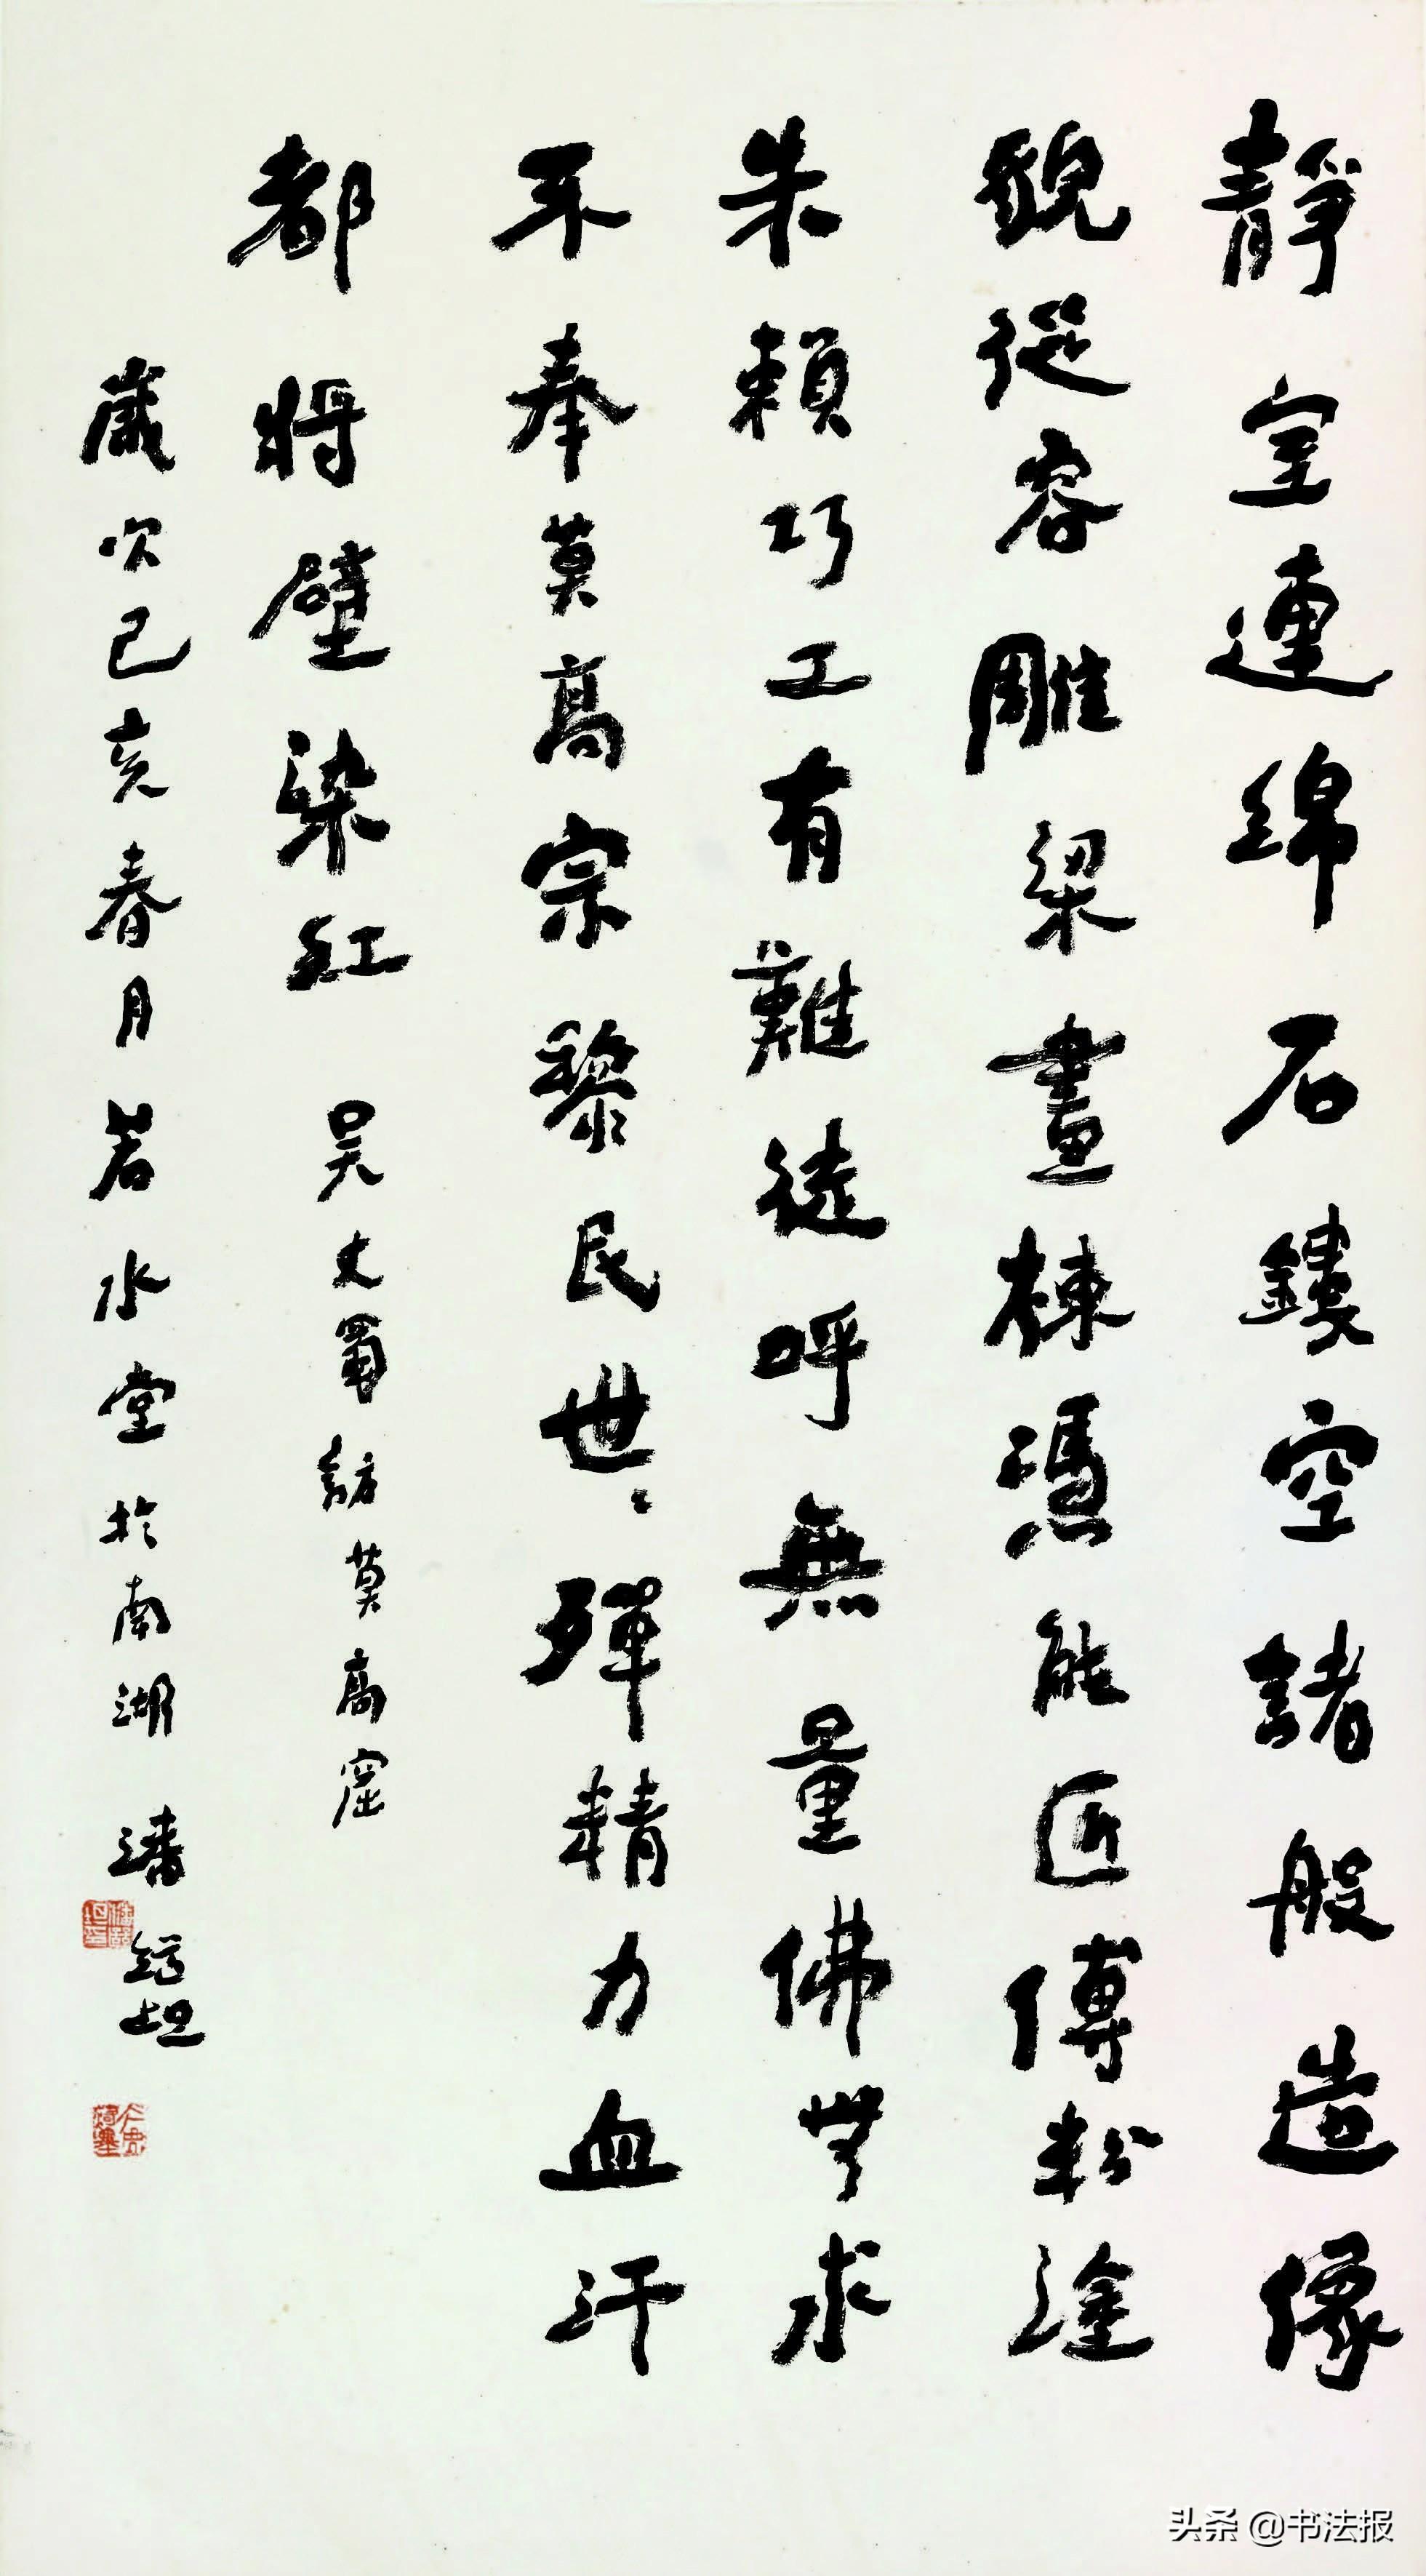 靜室連綿石鏤空諸般造像
貌從容雕梁畫棟憑能匠傅粉塗
朱賴巧工有難徒呼無量佛無求
不奉莫高宗黎民世〻殫精力血汗
都將壁染紅 吴丈蜀訪莫高窟
歲次己亥春月若水堂於南湖 潘
头条 @书法报